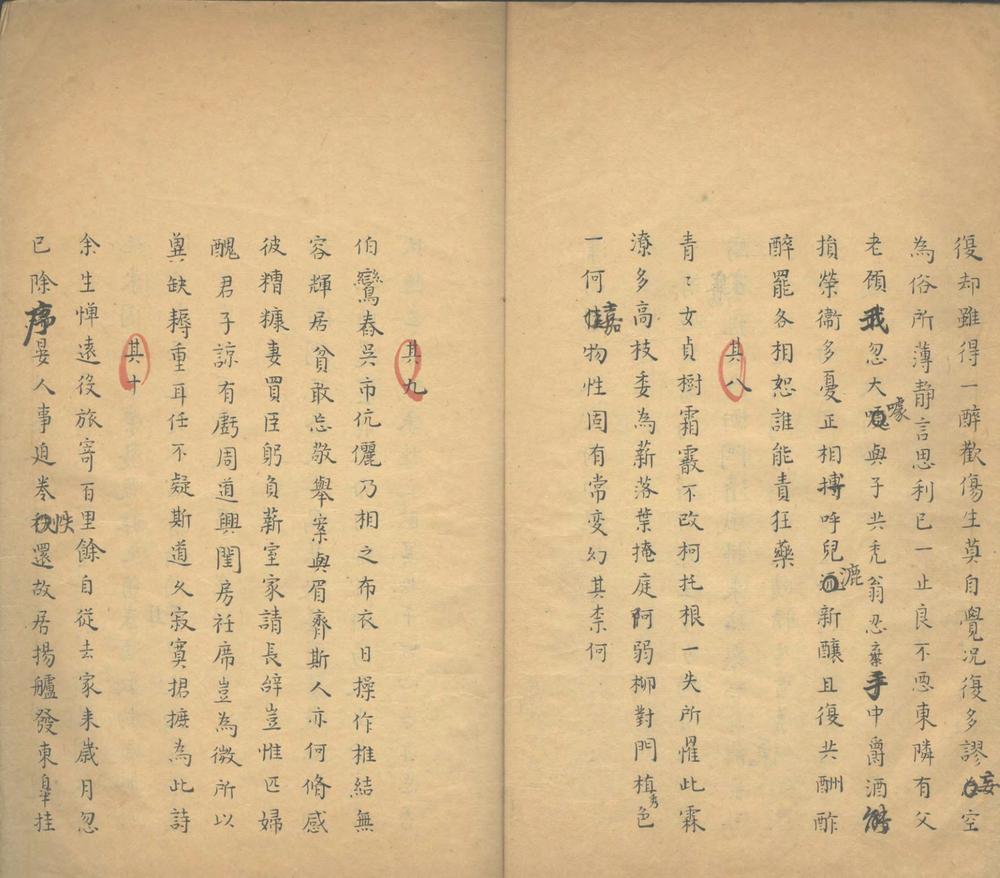 復却雖得一醉歡傷生莫自覺况復多謬妄空
為俗所薄静言思利已一止良不恶東隣有父
老顾我忽大噱與子共禿翁忍棄手中爵酒能
損榮衞多憂正相搏呼兒漉新釀且復共酬酢
醉罷各相恕誰能責狂藥
其八
青〻女貞樹霜霰不改柯托根一失所罹此霖
潦多高枝委為薪落葉掩庭阿弱柳對門植秀色
一何嘉物性固有常变幻其柰何
其九
伯鸞舂吳市伉儷乃相之布衣日操作椎結無
容輝居貧敢忘敬舉案與眉齊斯人亦何脩感
彼糟糠妻買臣躬負薪室家請長辝豈惟匹婦
醜君子諒有虧周道興閨房衽席豈為微所以
兾缺耨重耳任不疑斯道久寂寞捃摭為此詩
其十
余生憚遠役旅寄百里餘自從去家来歲月忽
已除序晏人事迫卷帙還故居揚艫發東皐挂